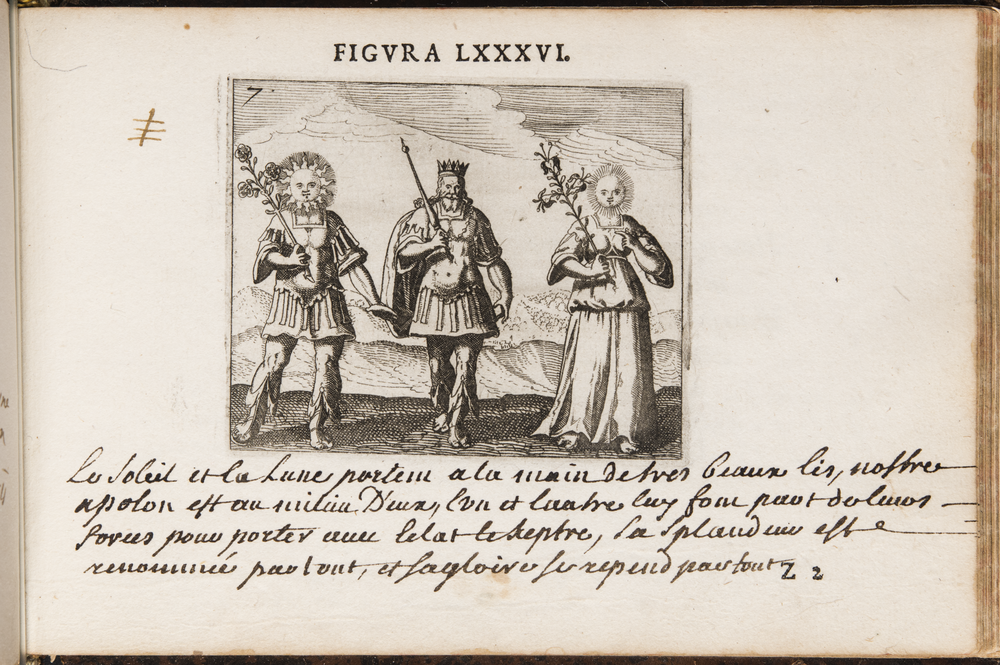 FIGVRA LXXXVI.
7.
Le Soleil et la Lune portent a la main de tres beaux lis, nostre
appolon est au milieu D'eux, l'vn et l'autre luy font part de leurs
forces pour porter avec l'eclat le Septre, Sa Splandeur est
renommée par tout, et Sa gloire se repend par tout
Z 2